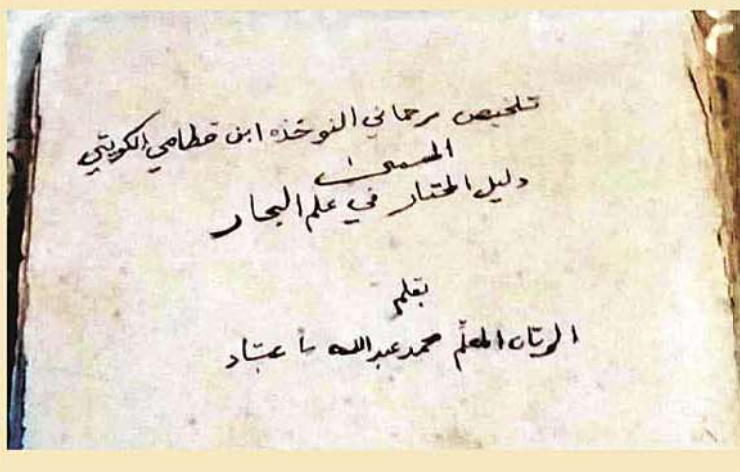 تلخيص رحماني النوخذه ابن قطامي الكويتي
المسمى
دليل المحتار في علم البحار
بقلم
الربان المعلم محمد عبدالله با عباد